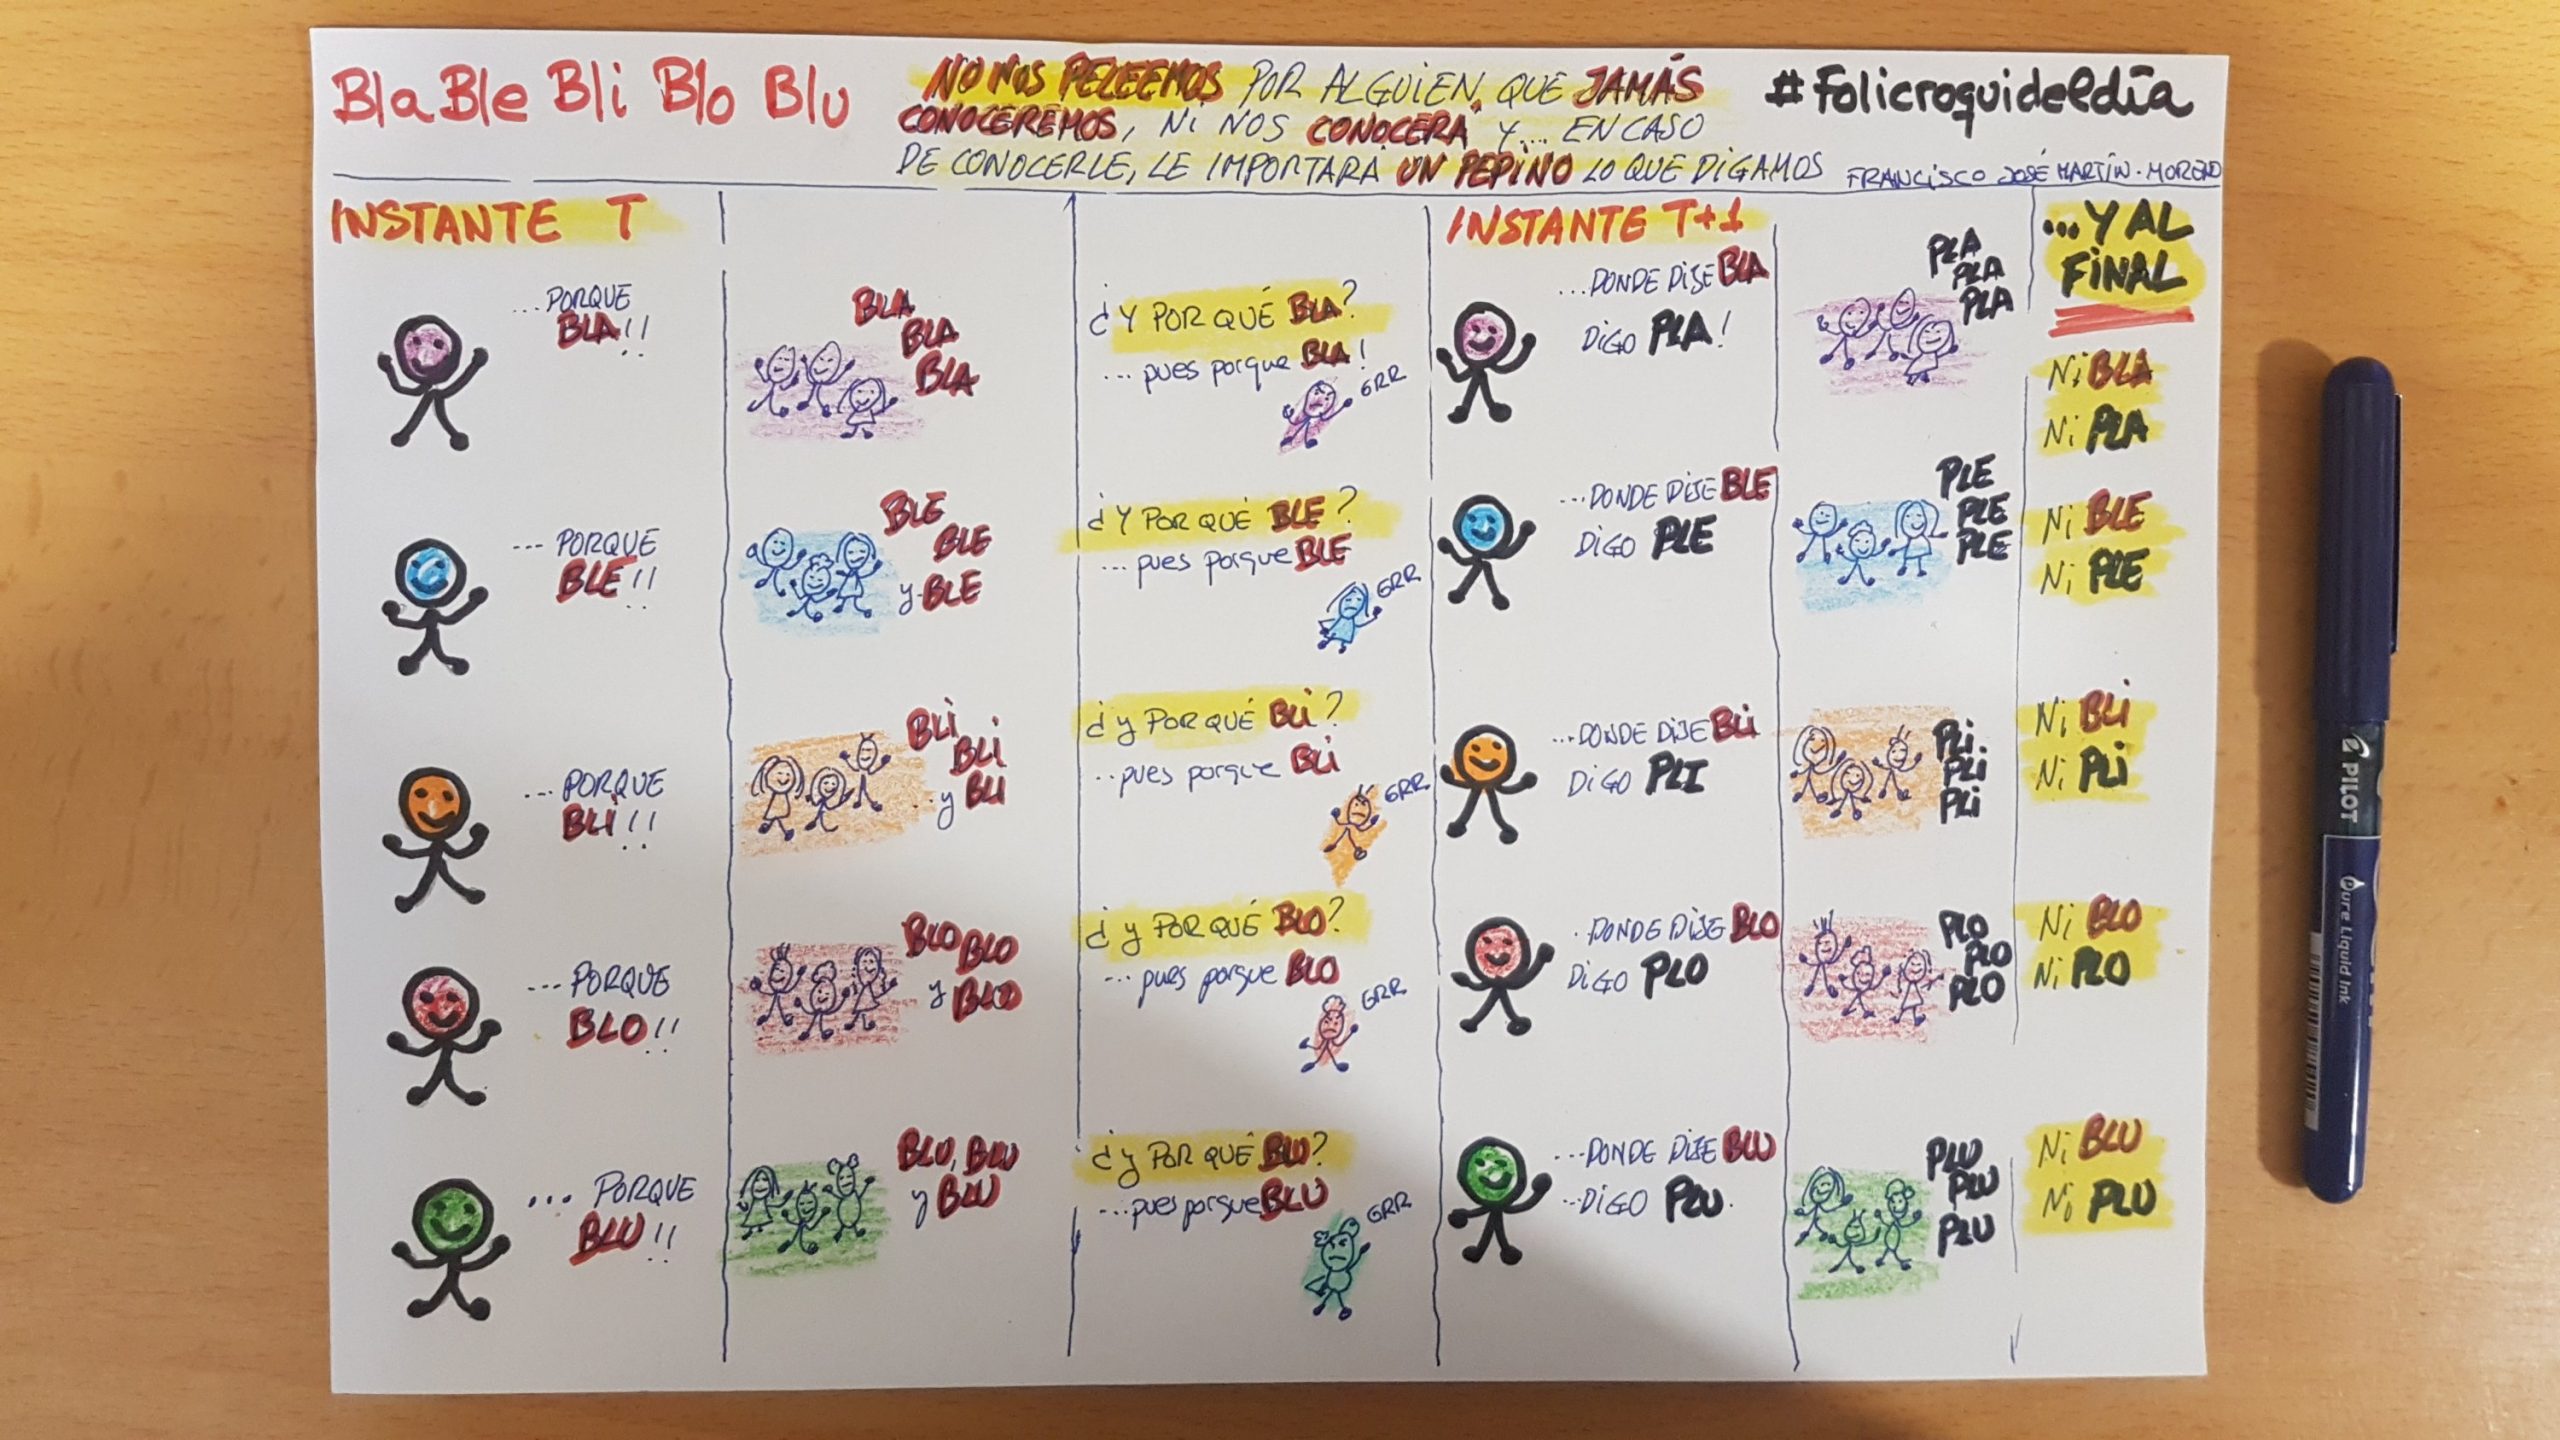 Bla Ble Bli Blo Blu
NO NOS PELEEMOS POR ALGUIEN, QUE JAMÁS
CONOCEREMOS, NI NOS CONOCERÁ Y... EN CASO
DE CONOCERLE, LE IMPORTARÁ UN PEPINO LO QUE DIGAMOS
#Folicroquideldía
FRANCISCO JOSÉ MARTÍN-MORENO
INSTANTE T
INSTANTE T+1
...Y AL
FINAL
...PORQUE
BLA!!
BLA
BLA
BLA
¿Y POR QUÉ BLA?
...pues porque BLA!
GRR
...DONDE DIJE BLA
DIGO PLA!
PLA
PLA
PLA
Ni BLA
Ni PLA
...PORQUE
BLE!!
BLE
BLE
y BLE
¿Y POR QUÉ BLE?
...pues porque BLE
GRR
...DONDE DIJE BLE
DIGO PLE
PLE
PLE
PLE
Ni BLE
Ni PLE
...PORQUE
BLI!!
BLI
BLI
...y BLI
¿y POR QUÉ BLI?
...pues porque BLI
GRR
...DONDE DIJE BLI
DIGO PLI
PLI.
PLI
PLI
Ni BLI
Ni PLI
...PORQUE
BLO!!
BLO BLO
y BLO
¿y POR QUÉ BLO?
...pues porque BLO
GRR
.DONDE DIJE BLO
DIGO PLO
PLO
PLO
PLO
Ni BLO
Ni PLO
...PORQUE
BLU!!
BLU, BLU
y BLU
¿y POR QUÉ BLU?
...pues porque BLU
GRR
...DONDE DIJE BLU
...DIGO PLU.
PLU
PLU
PLU
Ni BLU
Ni PLU
PILOT
Pure Liquid Ink